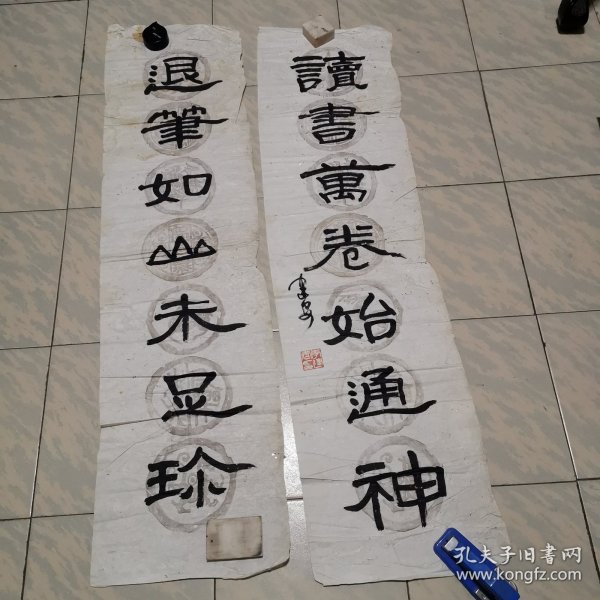 退筆如山未足珍
讀書萬卷始通神
孔夫子旧书网
www.kongfz.com